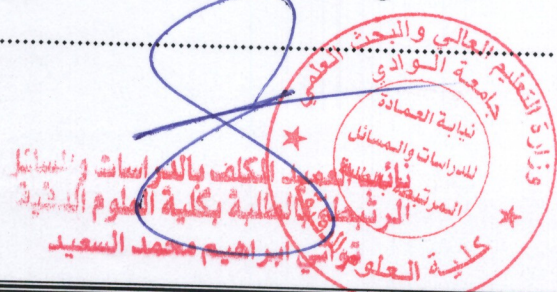 وزارة التعليم العالي والبحث العلمي
جامعة الوادي
نيابة العمادة
للدراسات والمسائل
المرتبطة
كلية العلوم
نائب العميد المكلف بالدراسات والمسائل
المرتبطة بالطلبة بكلية العلوم الدقيقة
ابراهيم محمد السعيد